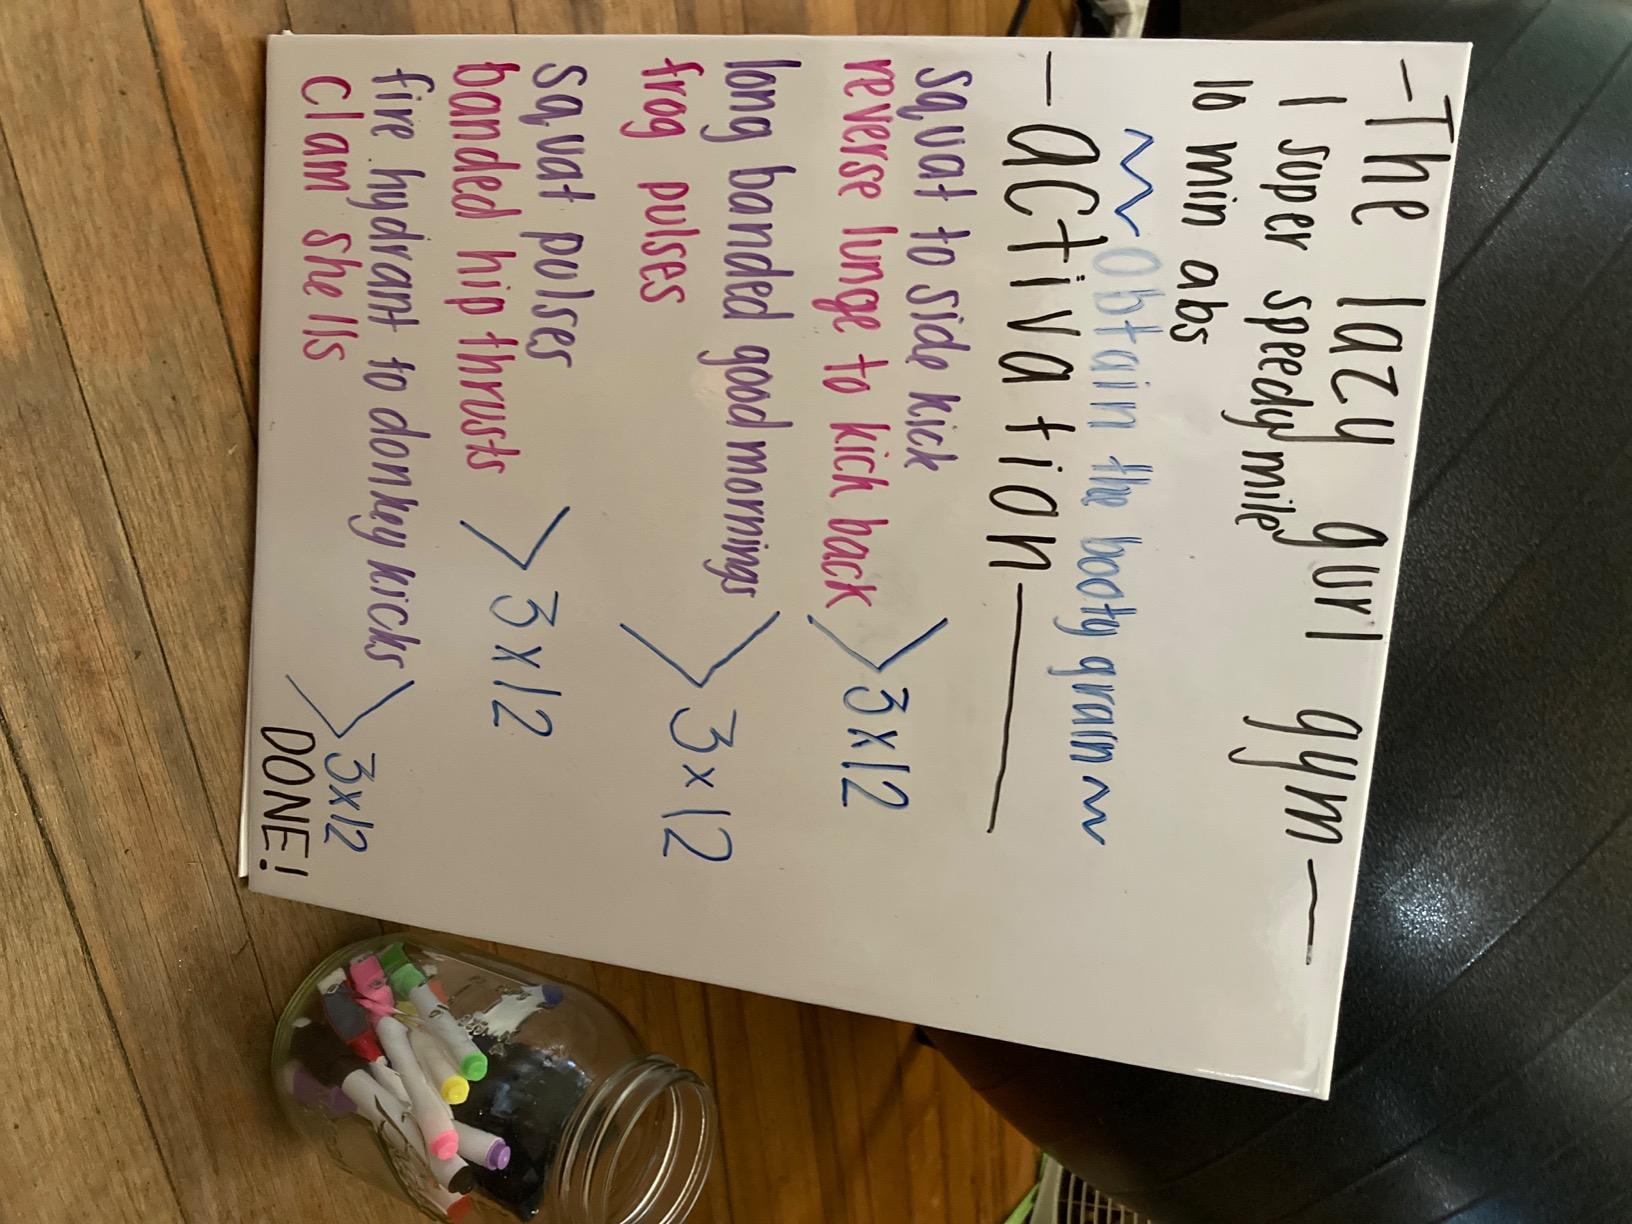 -The lazy gurl gym-
1 super speedy mile
10 min abs
~obtain the booty grain~
- activation
squat to side kick
reverse lunge to kick back > 3x12
long banded good mornings
frog pulses > 3x12
squat pulses
banded hip thrusts > 3x12
fire hydrant to donkey kicks
clam shells > 3x12
DONE!